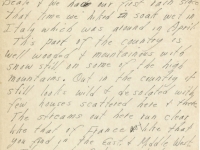 Dear & we had our first each other
that time we hiked so soak wet in
Italy which was around in April
This part of the country is
well wooded & mountainous wild
snow still on some of the high
mountains. Out in the country it
still looks wild & desolated with
few houses scattered here & there.
The streams out here run clear
like that of France & like that
you find in the East & Middle West